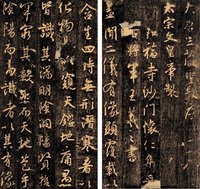 大唐三藏聖教序
太宗文皇帝製
弘福寺沙門懷仁集晉
右將軍王羲之書
蓋聞二儀有像顯覆載以
含生四時無形潛寒暑以
化物是以窺天鑒地庸愚
皆識其端明陰洞陽賢哲
罕窮其數然而天地苞乎
陰陽而易識者以其有像